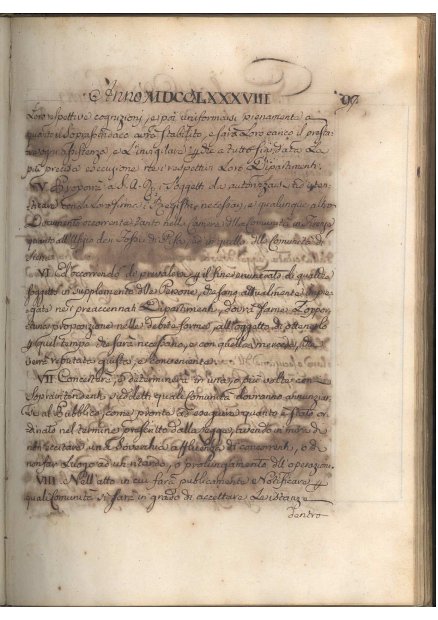 Anno MDCCLXXXVIII 97
Loro respettive cognizioni, e poi uniformarsi pienamente a
quanto il Soprasindaco avrà stabilito, e sarà Loro carico il presta-
re ogni assistenza e L'invigilare perchè a tutto sia data La
più precisa esecuzione nei respettivi Loro Dipartimenti
V. Proporre a S.A.R. i soggetti da autorizzarsi ad
con la Loro firma i Registri necessari, e qualunque altro
Documento occorrente tanto nelle Camere delle Comunità
quanto all'Ufizio dei Fossi di Pisa, ed in quello della Comunità di
Siena
VI. Ed occorrendo di prevalersi per il fine enunciato di qualche
soggetto in supplemento delle Persone, che sono attualmente impie-
gate nei preaccennati Dipartimenti, dovrà farne L'oppor-
tuna proposizione nelle debite forme, all'oggetto di ottenerlo
per quel tempo che sarà necessario, e con quella mercede, che
verrà reputata giusta, e conveniente
VII. Concertare, e determinare in una, o più volte con
Sopraintendenti suddetti quali Comunità dovranno annunziar-
si al Pubblico, come pronte ad eseguire quanto è stato or-
dinato nel termine prescritto dalla Legge, avendo in mira di
non eccitare una soverchia affluenza di concorrenti, o di
non far Luogo ad un ritardo, o prolungamento dell'operazioni
VIII. Nell'atto in cui farà pubblicamente Notificare per
quali Comunità si sarà in grado di accettare Le istanze
dentro